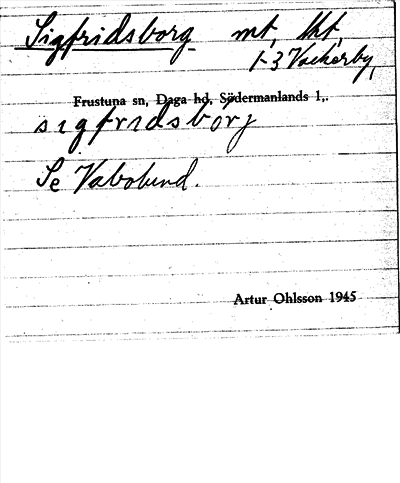 Sigfridsborg mt, lht,
1-3 Vackerby,
Frustuna sn, Daga hd, Södermanlands l,.
sigfridsborj
Se Vabolund.
Artur Ohlsson 1945